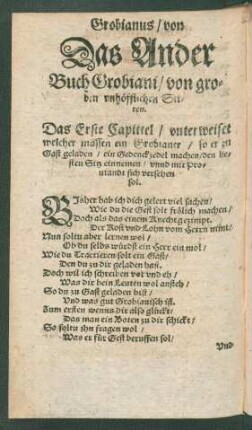 Grobianus / von
Das Ander
Buch Grobiani / von gro-
ben vnhöfflichen Sit-
ten.
Das Erste Capittel / vnterweiset
welcher massen ein Grobianer / so er zu
Gast geladen / ein Gedenckzedel machen / den be-
sten Sitz einnemen / vnnd mit Pro-
uiandt sich versehen
sol.
BIsher hab ich dich gelert viel sachen /
Wie du die Gest solt frölich machen /
Doch als das einem Knecht gezimpt.
Der Kost vnd Lohn vom Herrn nimt /
Nun soltu aber lernen wol /
Ob du selbs würdst ein Herr ein mol /
Wie du Tractieren solt ein Gast /
Den du zu dir geladen hast.
Doch wil ich schreiben vor vnd eh /
Was dir bein Leuten wol ansteh /
So du zu Gast geladen bist /
Vnd was gut Grobianisch ist.
Zum ersten wenns dir also glückt /
Das man ein Boten zu dir schickt /
So soltu ihn fragen wol /
Was er für Gest beruffen sol /
Vnd